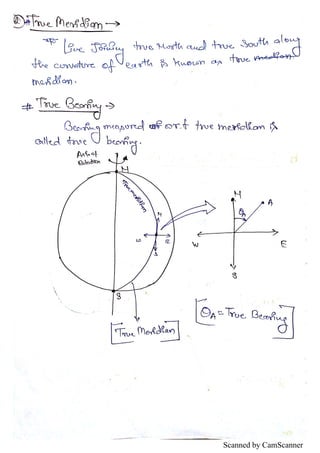 True Meridian →
* Line Joining true North and true South along
the curvature of earth is known as true
meridian.
# True Bearing →
Bearing measured w.r.t true meridian is
called true bearing.
Axis of
Rotation
N
True meridian
N
W
E
S
S
True Meridian
N
A
θA
W
E
S
θA = True Bearing
Scanned by CamScanner